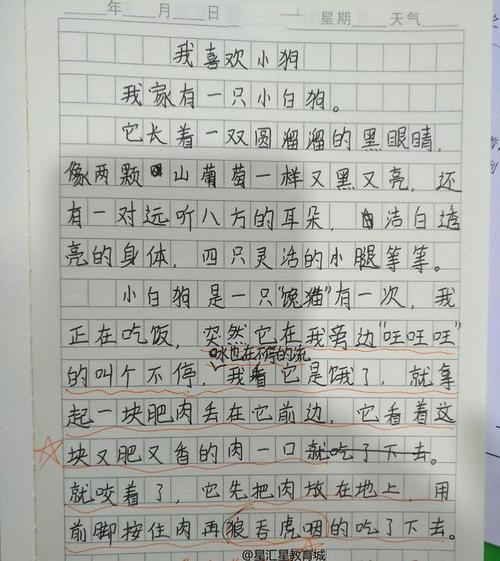 年 月 日 星期 天气
我喜欢小狗
我家有一只小白狗。
它长着一双圆溜溜的黑眼睛,
像两颗山葡萄一样又黑又亮,还
有一对远听八方的耳朵,洁白透
亮的身体,四只灵活的小腿等等。
小白狗是一只“馋猫”有一次,我
正在吃饭,突然它在我旁边“旺旺旺”
口水也在不停的流
的叫个不停,我看它是饿了,就拿
起一块肥肉丢在它前边,它看着这
块又肥又香的肉一口就吃了下去。
就咬着了,它先把肉放在地上,用
前脚按住肉再狼吞虎咽的吃了下去。
@星汇星教育城